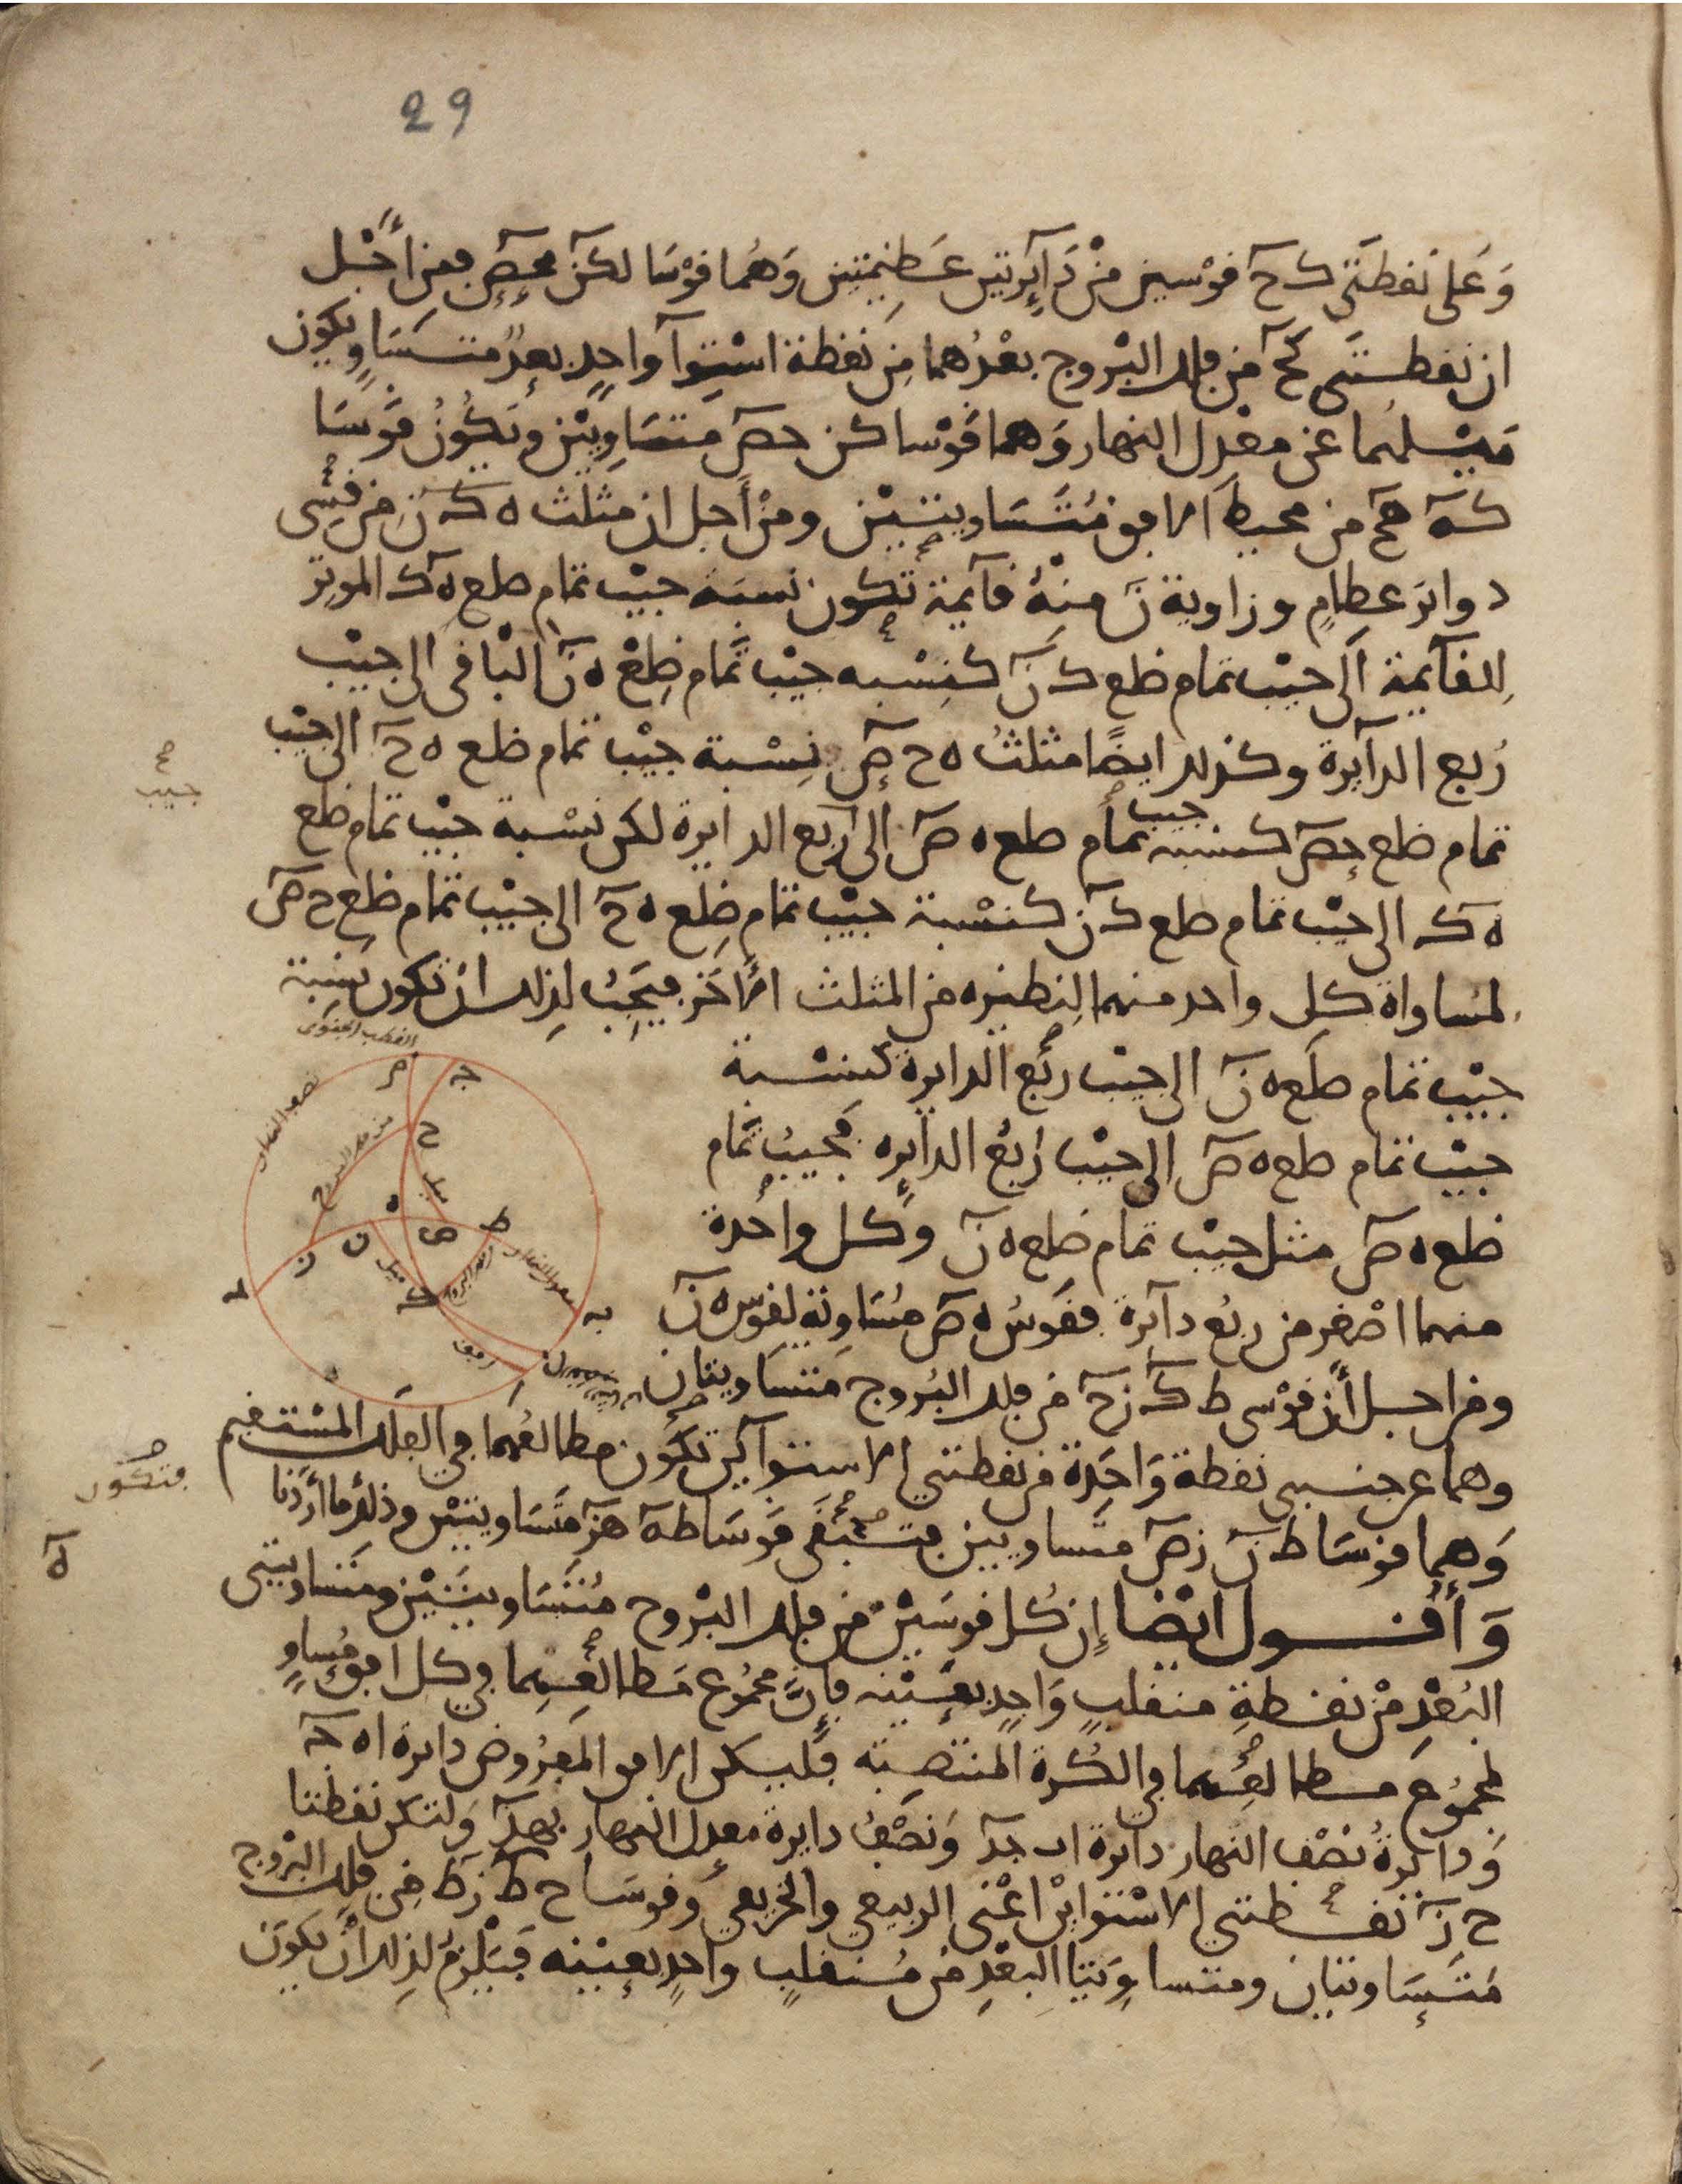 29
وَعَلى نقطتَي ك ح قوْسين مِنْ دَآيِرتين عَظِيمتين وَهُما قوْسَا لكن محص فمن أجْل
ان نقطتَي كح من فلك البُروج بعْدُهما مِن نقطة استوآ واحِدٍ بعدٌ متسَاوٍ يكون
مَيْلهُما عن معْدل النهار وَهما قوْسا كن حص متسَاوِيَيْن وتكُونُ قوْسَا
كه هح من محيط الافق مُتَسَاويتيْن ومنْ أجل ان مثلث ه ك ن من قِسِي
دوائر عظامٍ وزاوية ن مِنْهُ قآيمة تكون نسبَة جيْب تمام ضلع ه ك الموتِر
لِلقآيمة الَى جَيْب تمام ضلع ك ن كنِسْبه جيْب تَمام ضِلعْ ه ن البْاقي الى جيْب
رُبع الدآيرة وكذلك ايضًا مثلثُ ه ح ص نِسْبة جيْب تمام ضلع ه ح الى جيْب
تمام ضلع حص كنسبه جيب تمام ضلع ه ص الى رُبع الدايرة لكن نسْبة جيْب تمام ضلع
ه ك الى جيْب تمام ضلع ك ن كنسْبة جيْب تمام ضِلع ه ح الى جيْب تمام ضلع ح ص
لمسَاواة كل واحد منهما لِنظيره من المثلث الأخَر فيَجِبُ لِذلك انْ تكون نسْبة
جيْب تمام ضلع ه ن الى جيْب ربُع الدايرة كنسْبة
جيْب تمام ضلع ه ص الى جيْب رُبْع الدآيره فجيبُ تمام
ضلع ه ص مثل جيْب تمام ضلع ه ن وكل واحدة
منهما اصْغر من ربُع دآيرة فقوسُ ه ص مُسَاوِيَة لقوس ه ن
ومن اجل أن قوْسي ط ك زح من فلك البُروج متسَاويتان
وهما عن جنبي نقطة وَاحِدة من نقطتي الاستوآين تكُون مطالعُهما في الفلك المسْتقيم
وَهما قوسَا ط ن زص متساويين فتبْقى قوسَا طه هز متَسَاويتيْن وذلك ما أردنا
وَأقول ايْضا إن كُل قوسَيْن من فلك البُروج مُتَسَاويتَيْن ومتساويتي
البُعْدِ منْ نقطةِ منقلبٍ وَاحِدٍ بعيْنه فإنَّ مجمُوع مَطالعهما في كل افق مُساوٍ
لمجمُوع مَطالعهما في الكُرة المنتصِبَة فليكن الافق المفرُوض دايره اه جه
وَدايرةُ نصْف النهار دايرة اب جد وَنصْفُ دايرة معدل النهار بهد ولتكن نقطتا
ح ز نقطتي الاسْتوايْن اعْني الربيعي والخريفي وقوسَا ح ط زط من فلك البُروج
مُتَسَاويتان ومتساوِيَتا البعْدِ من مُنقلبٍ واحدٍ بعيْنه فيَلزم لِذلك أنْ يكون
جيب
فتكون
ه
القطب الجنوبي
نصف النهار
من فلك البروج
ميل
ميل
معدل النهار
افق
ص
ج
ح
ه
ط
ص
ن
ز
د
ك
ب